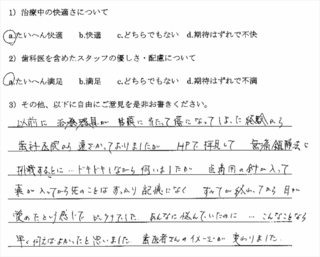 1) 治療中の快適さについて
a.たいへん快適 b.快適 c.どちらでもない d.期待はずれで不快
2) 歯科医を含めたスタッフの優しさ・配慮について
a.たいへん満足 b.満足 c.どちらでもない d.期待はずれで不満
3) その他、以下に自由にご意見を是非お書きください。
以前に 治療器具が 舌根に当たって傷になってしまった経験から
歯科医院から遠ざかっておりましたが HPで拝見して 無痛麻酔法に
挑戦するに…ドキドキしながら伺いましたが 点滴用の針が入って
薬が入ってから先のことは あまり記憶になく すべてが終わってから目が
覚めたという感じで ビックリでした あんなに悩んでいたのに…こんなことなら
早く伺えばよかったと思いました 歯医者さんのイメージが変わりました